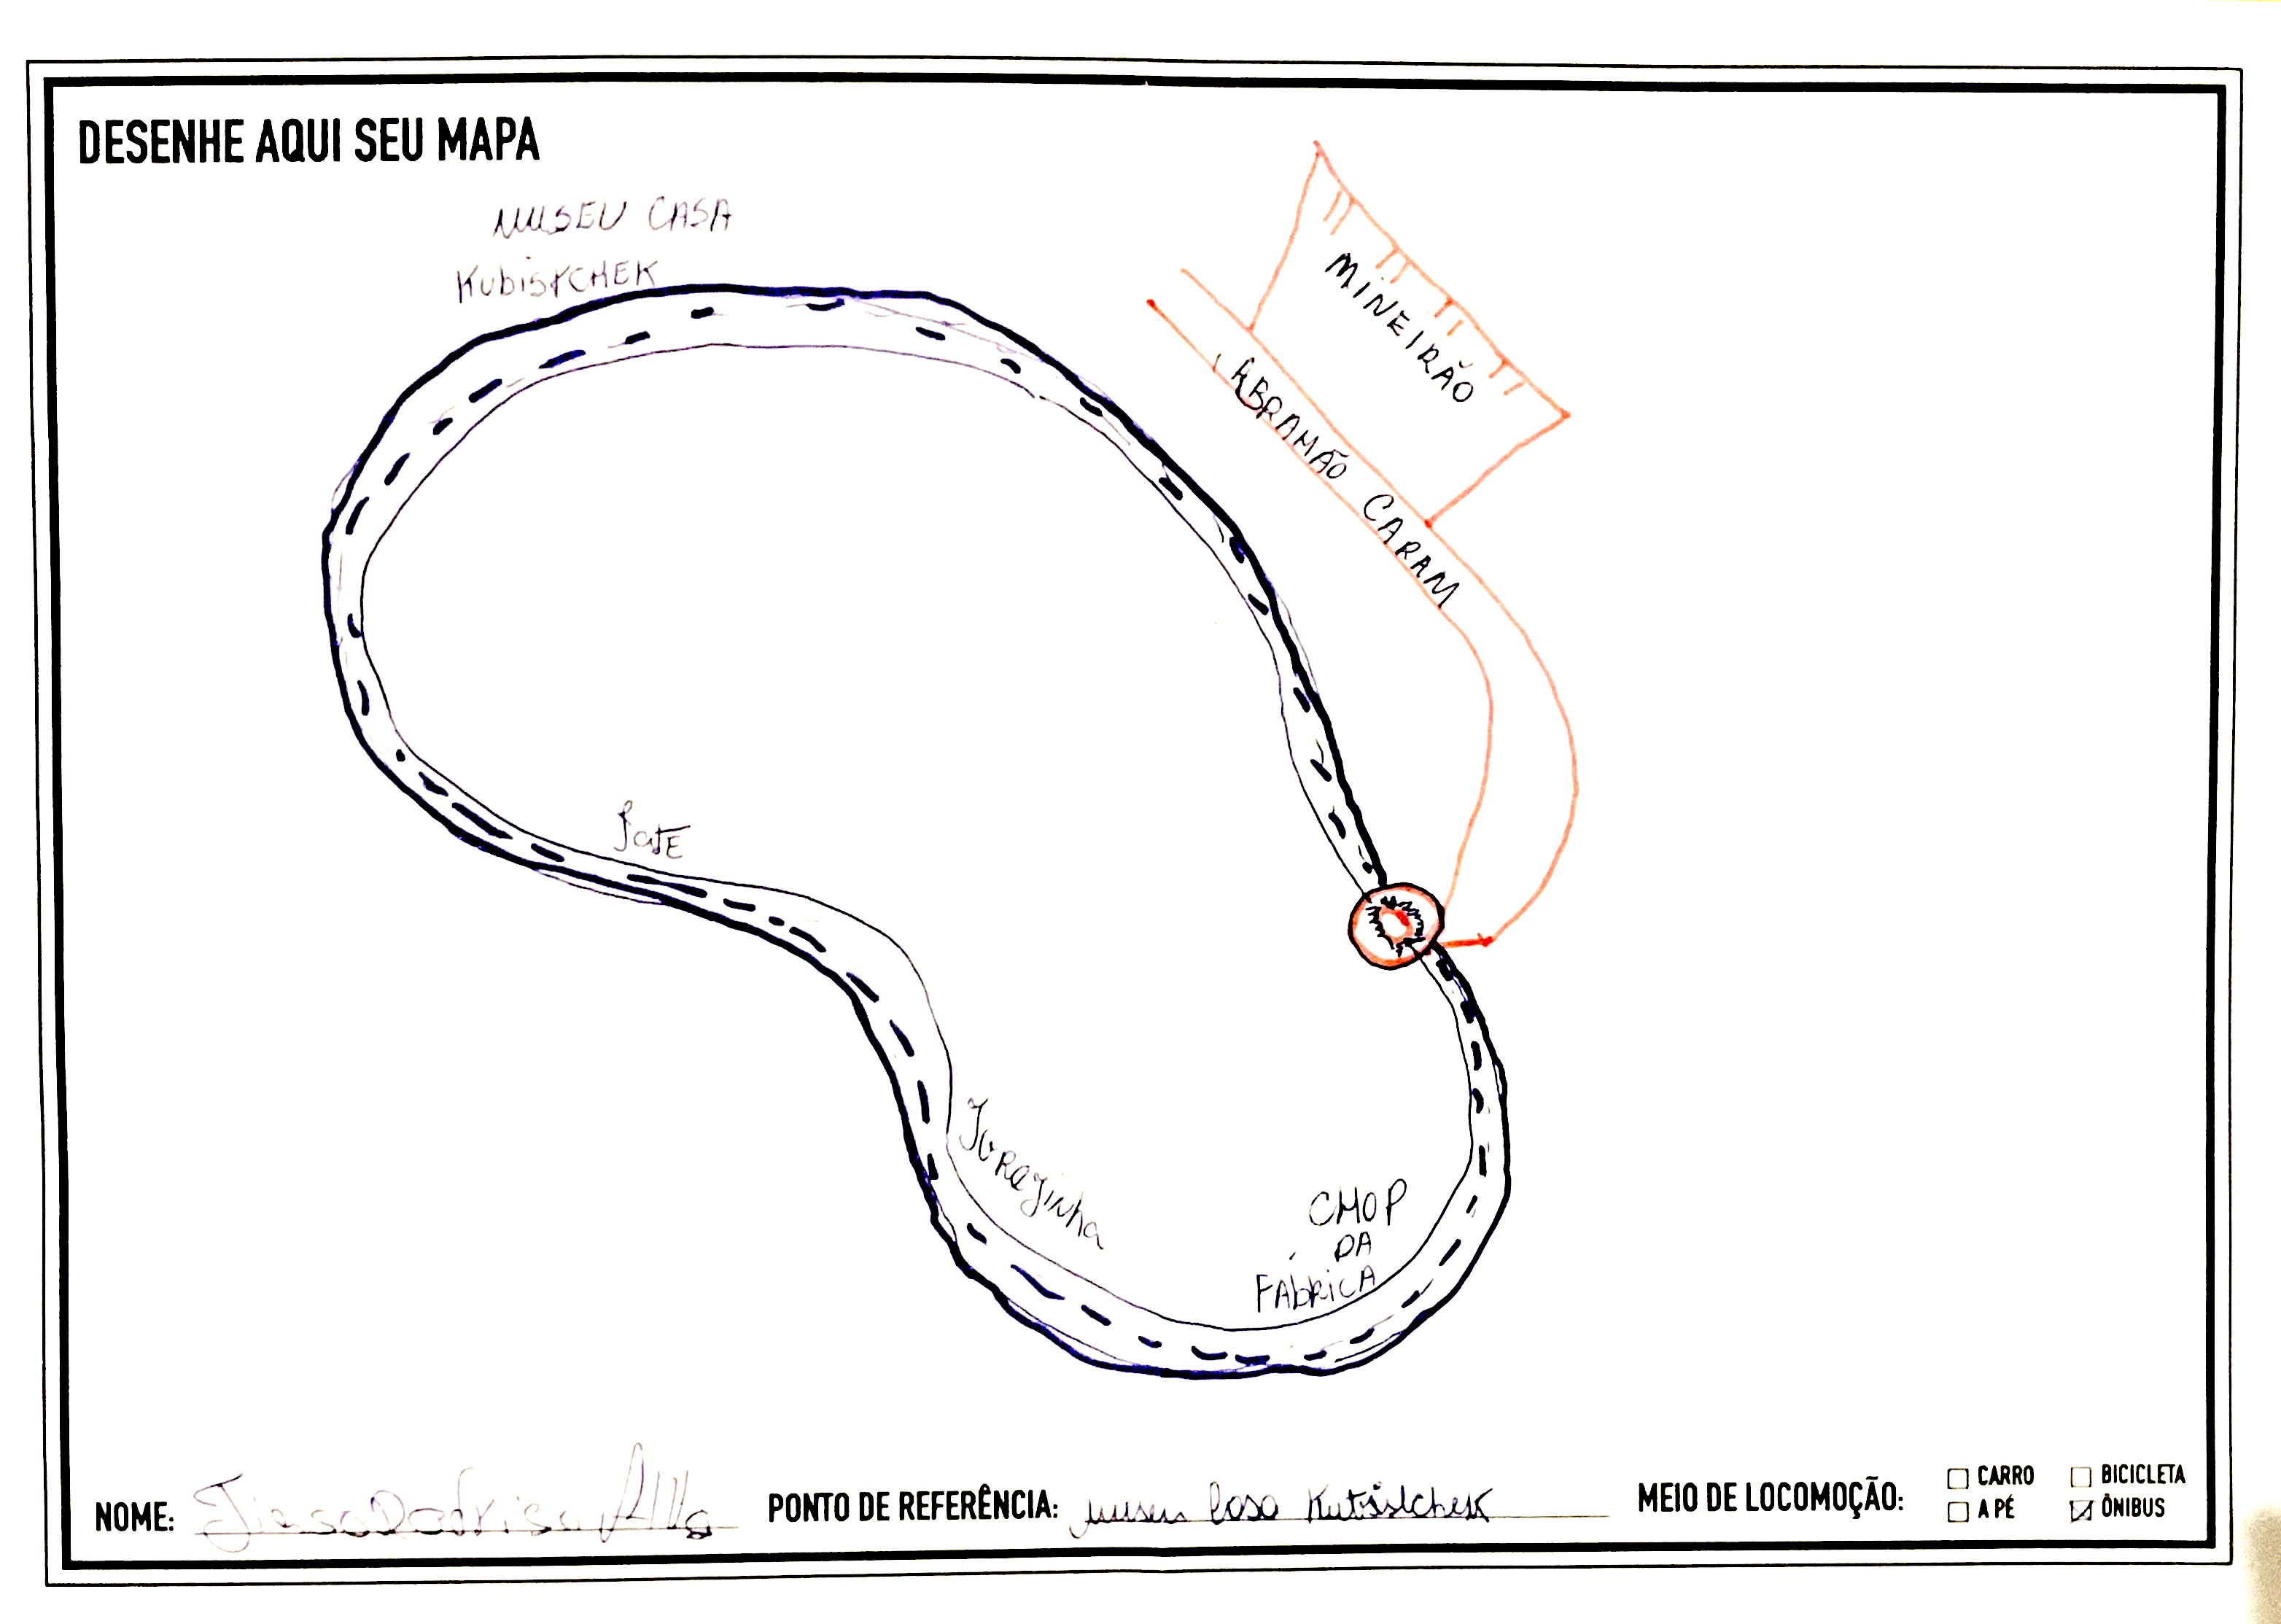 DESENHE AQUI SEU MAPA
MUSEU CASA
KubistCHEK
MiNEiRÃO
ABRAMÃO CARAM
IateE
IGREJinha
CHOP
DA
FAbRiCA
NOME:
PONTO DE REFERÊNCIA: museu Casa Kubistchek
MEIO DE LOCOMOÇÃO:
CARRO
BICICLETA
A PÉ
ÔNIBUS